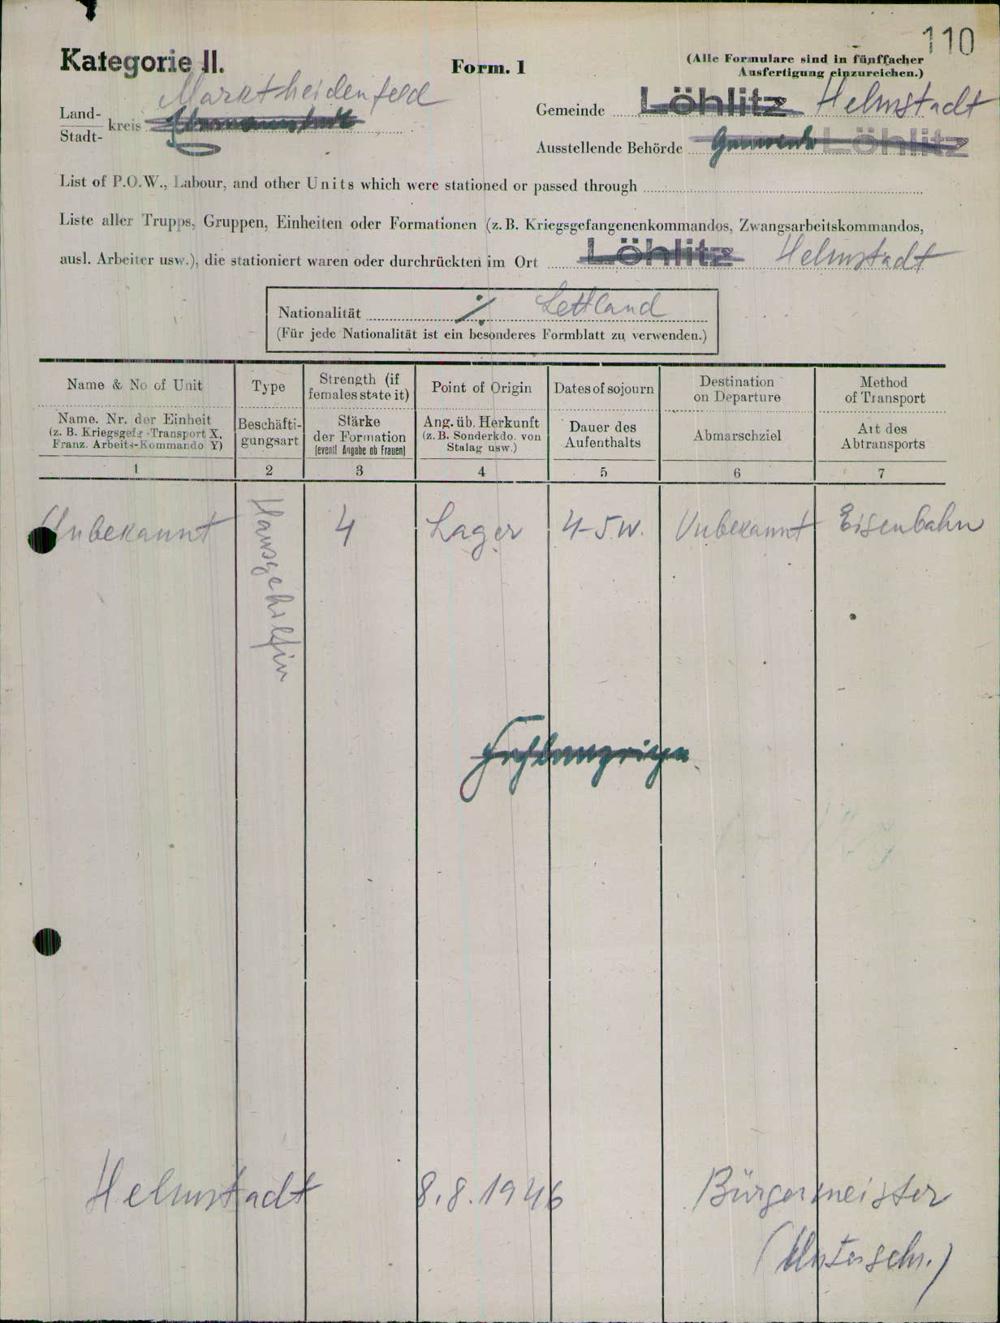 110
Kategorie II.
Form. 1
(Alle Formulare sind in fünffacher
Ausfertigung einzureichen.)
Marktheidenfeld
Land-
Stadt- kreis Ebermannstadt
Gemeinde Löhlitz Helmstadt
Ausstellende Behörde Gemeinde Löhlitz
List of P.O.W., Labour, and other Units which were stationed or passed through
Liste aller Trupps, Gruppen, Einheiten oder Formationen (z. B. Kriegsgefangenenkommandos, Zwangsarbeitskommandos,
ausl. Arbeiter usw.), die stationiert waren oder durchrückten im Ort Löhlitz Helmstadt
Nationalität ./. Lettland
(Für jede Nationalität ist ein besonderes Formblatt zu verwenden.)
Name & No of Unit
Name. Nr. der Einheit
(z. B. Kriegsgefg.-Transport X,
Franz. Arbeits-Kommando Y)
1
Type
Beschäfti-
gungsart
2
Strength (if
females state it)
Stärke
der Formation
(eventl Angabe ob Frauen)
3
Point of Origin
Ang. üb. Herkunft
(z. B. Sonderkdo. von
Stalag usw.)
4
Dates of sojourn
Dauer des
Aufenthalts
5
Destination
on Departure
Abmarschziel
6
Method
of Transport
Art des
Abtransports
7
Unbekannt Hausgehilfin 4 Lager 4-5 W. Unbekannt Eisenbahn
Fehlanzeige.
Helmstadt 8.8.1946 Bürgermeister
(Unterschr.)